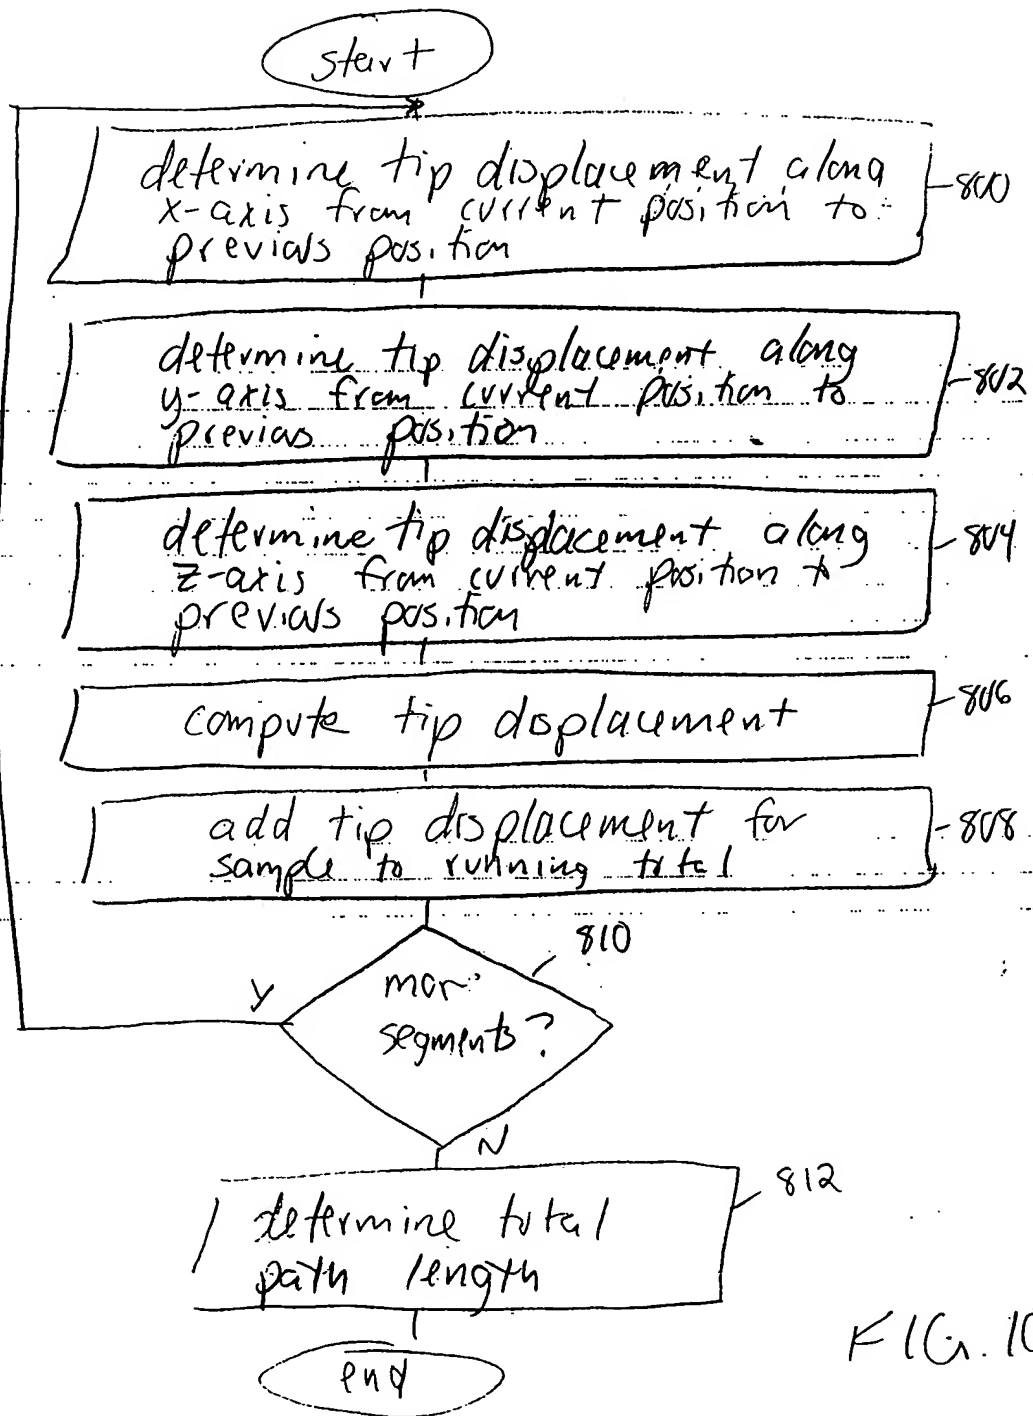 start
determine tip displacement along
x-axis from current position to
previous position
800
determine tip displacement along
y-axis from current position to
previous position
802
determine tip displacement along
z-axis from current position to
previous position
804
compute tip displacement
806
add tip displacement for
sample to running total
808
810
more
segments?
Y
N
812
determine total
path length
end
FIG. 10